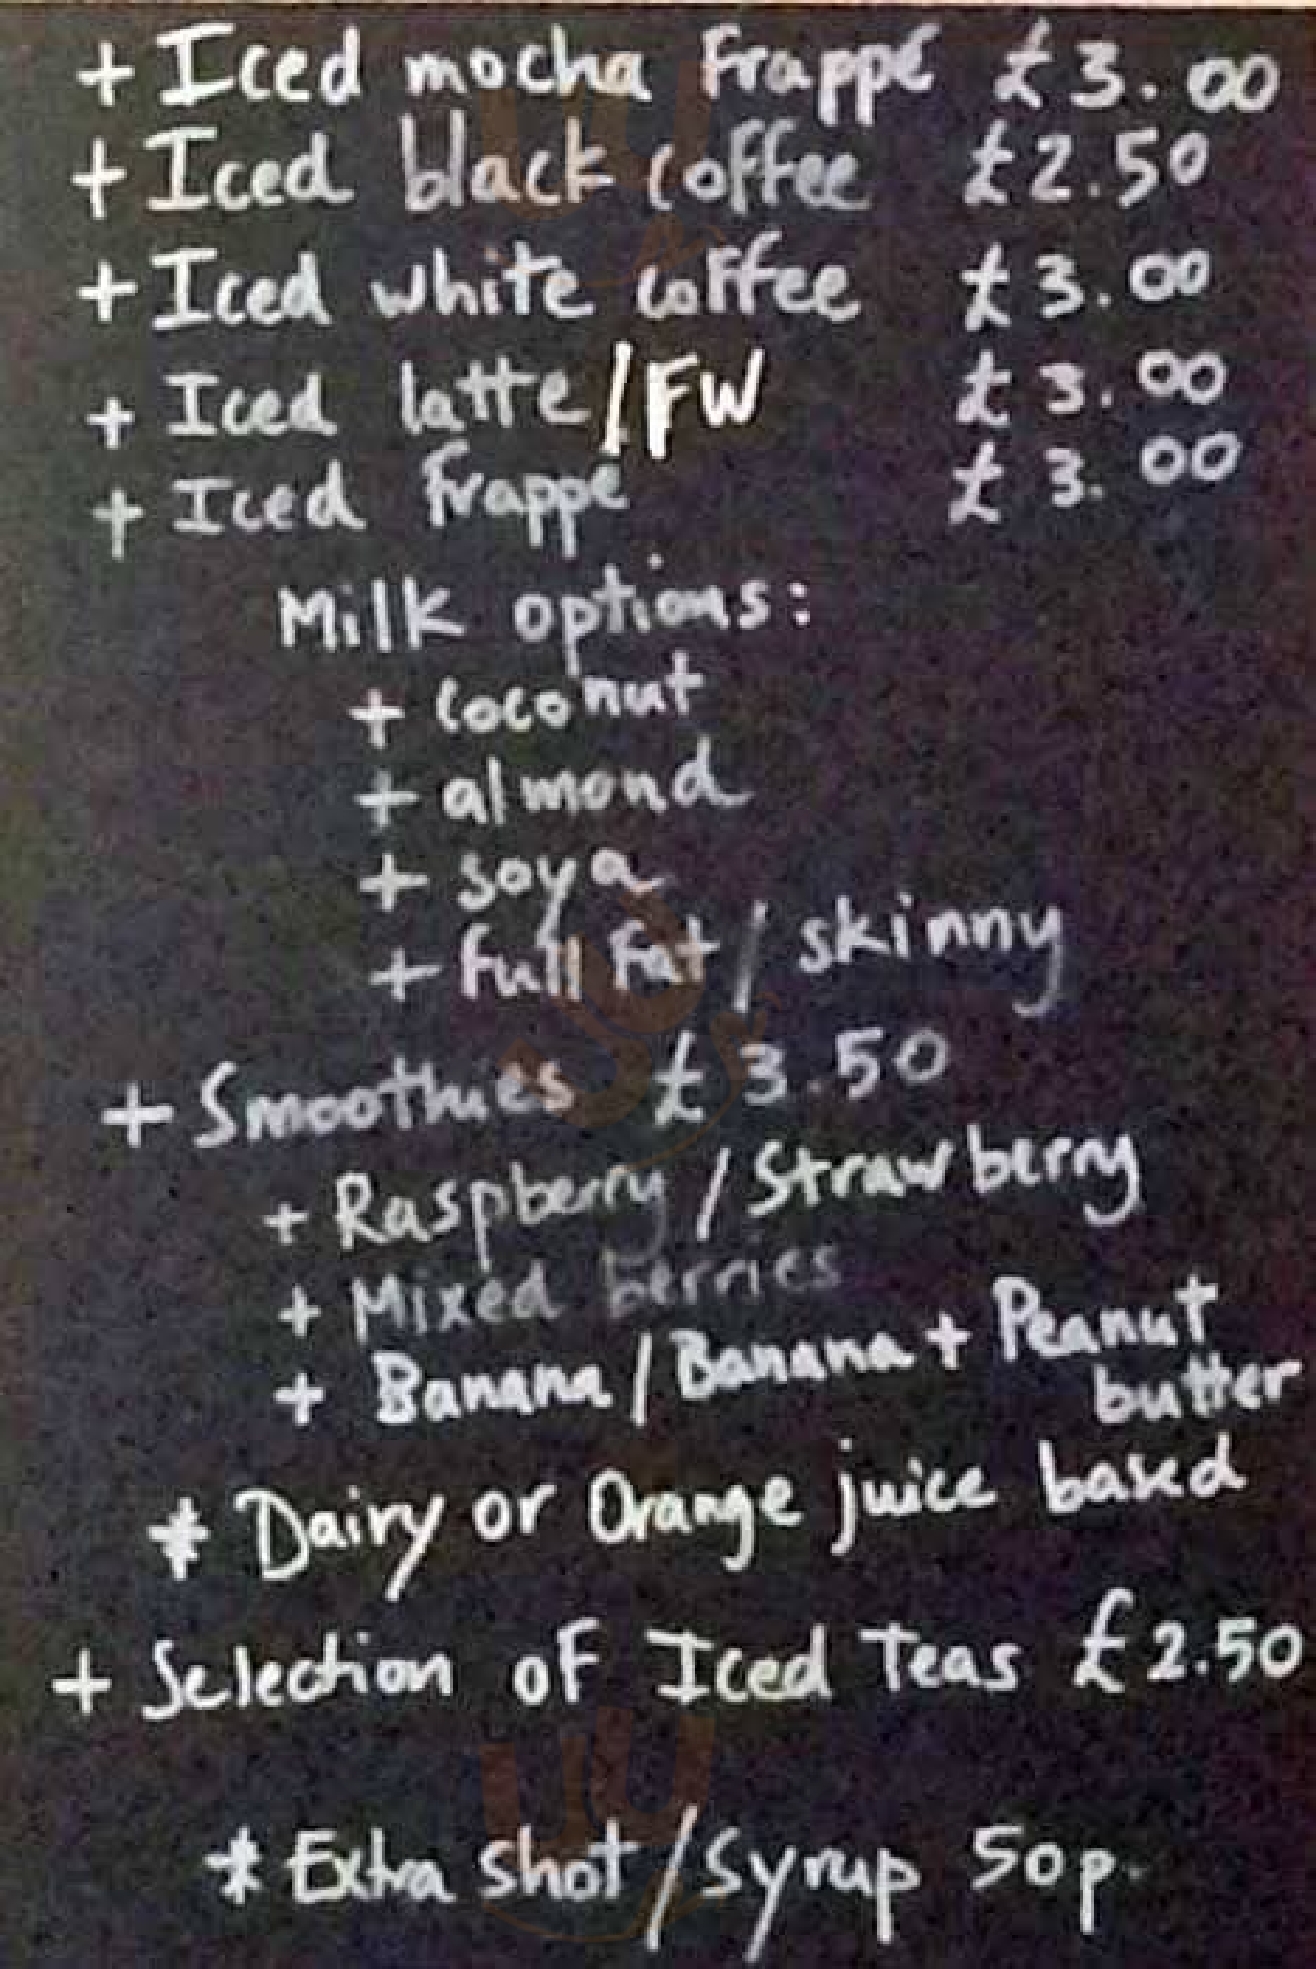 + Iced mocha frappé £3.00
+ Iced black coffee £2.50
+ Iced white coffee £3.00
+ Iced latte/FW £3.00
+ Iced frappé £3.00
Milk options:
+ coconut
+ almond
+ soya
+ full fat / skinny
+ Smoothies £3.50
+ Raspberry / Strawberry
+ Mixed berries
+ Banana / Banana + Peanut
butter
* Dairy or Orange juice based
+ Selection of Iced Teas £2.50
* Extra shot / Syrup 50p.